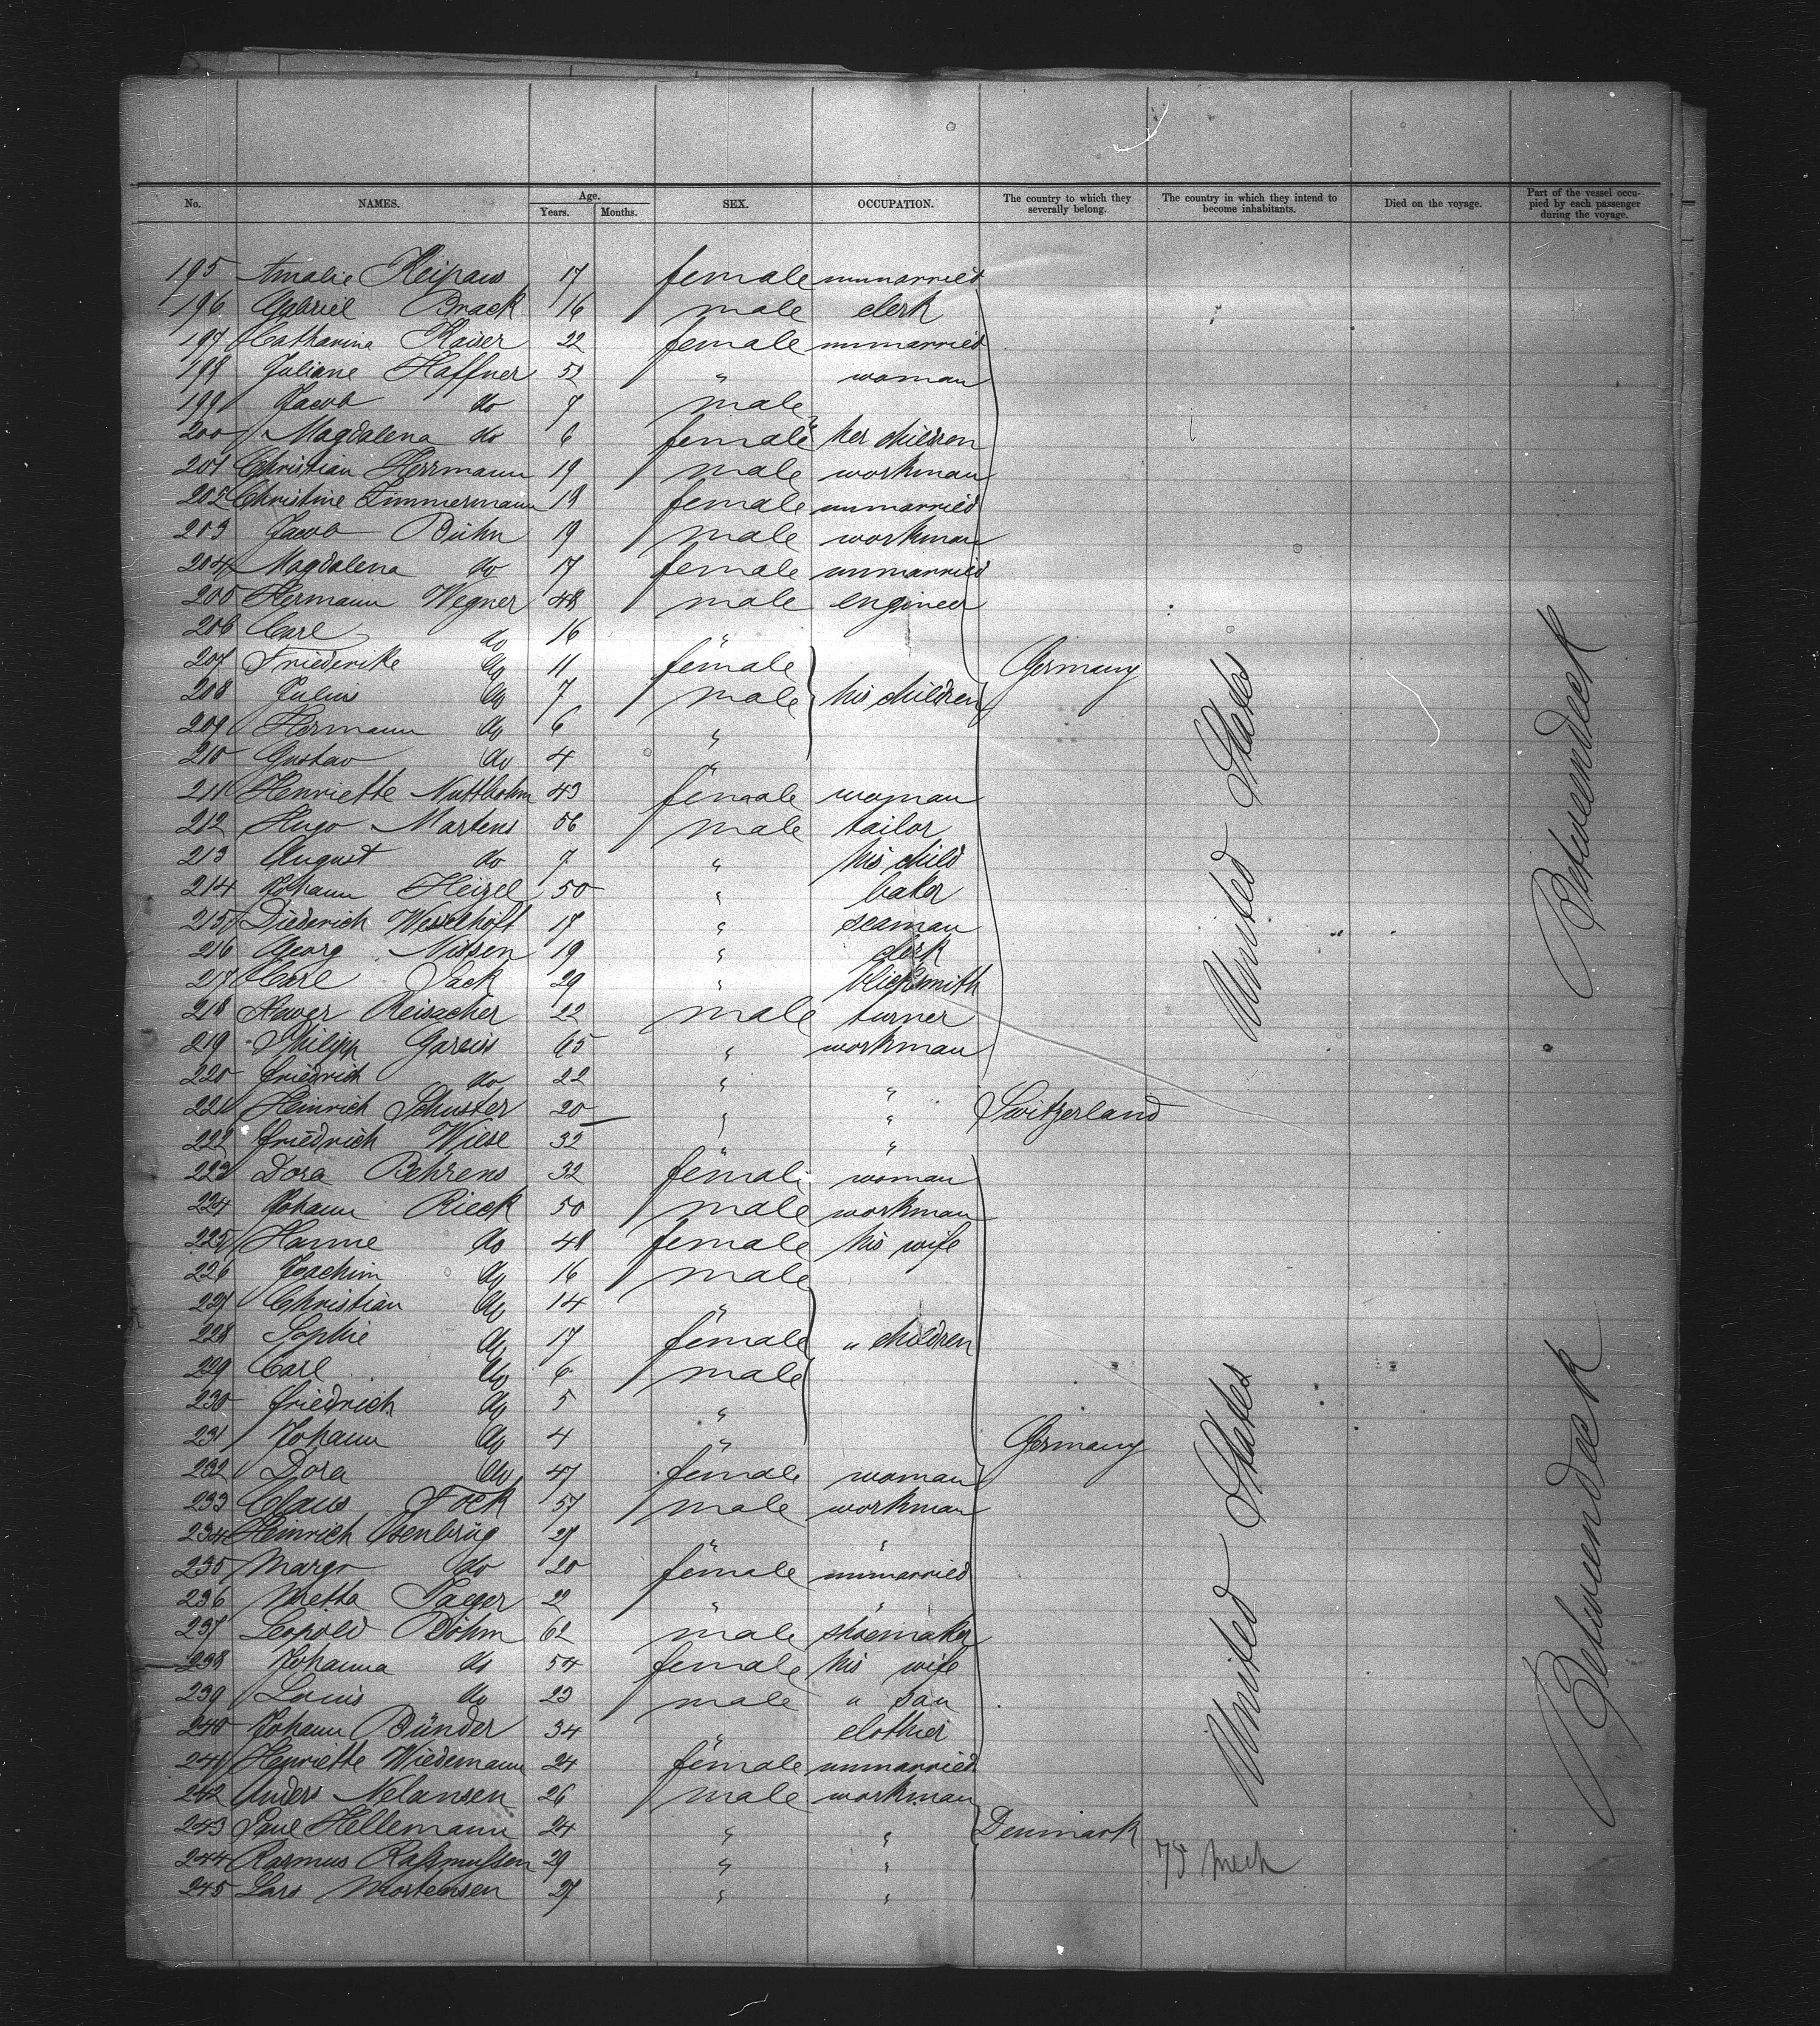 No. NAMES. Age. Years. Months. SEX. OCCUPATION. The country to which they severally belong. The country in which they intend to become inhabitants. Died on the voyage. Part of the vessel occupied by each passenger during the voyage.
195 Amalie 17 female unmarried
196 Gabriel Brack 16 male clerk
197 Catharina Kaiser 22 female unmarried
198 Juliane Haffner 52 " woman
199 Jacob do 7 male
200 Magdalena do 6 female " her children
201 Christian Herrmann 19 male workman
202 Christine Zimmermann 18 female unmarried
203 Jacob Bühn 19 male workman
204 Magdalena do 17 female unmarried
205 Hermann Wegner 48 male engineer
206 Carl do 16 "
207 Friederike do 11 female Germany
208 Julius do 7 male his children
209 Hermann do 6 "
210 Gustav do 4 "
211 Henriette 43 female woman
212 Hugo Martens 56 male tailor
213 August do 7 " his child
214 Johann Heizel 50 " baker
215 Diederich Wesselhöft 17 " seaman
216 Georg Nissen 19 " clerk
217 Carl Sack 29 "
218 Reisacher 22 male turner
219 Philipp Gareiss 65 " workman
220 Friedrich do 22 " "
221 Heinrich Schuster 20 " " Switzerland
222 Friedrich Wiese 32 " "
223 Dora Behrens 32 female woman
224 Johann Rieck 50 male workman
225 Hanne do 48 female his wife
226 Joachim do 16 male
227 Christian do 14 "
228 Sophie do 17 female " children
229 Carl do 6 male
230 Friedrich do 5 "
231 Johann do 4 " Germany
232 Dora do 47 female woman
233 Claus Fock 57 male workman
234 Heinrich Osenbrüg 27 " "
235 Margr do 20 female unmarried
236 Metta Jaeger 22 " "
237 Leopold Böhm 62 male shoemaker
238 Johanna do 54 female his wife
239 Louis do 23 male " son
240 Johann Bünder 34 " clothier
241 Henriette Wiedemann 24 female unmarried
242 Anders Nelansen 26 male workman
243 Paul Hellemann 24 " " Denmark
244 Rasmus Rassmussen 29 " "
245 Lars Mortensen 27 " "
United States
Betweendeck
United States
Betweendeck
75